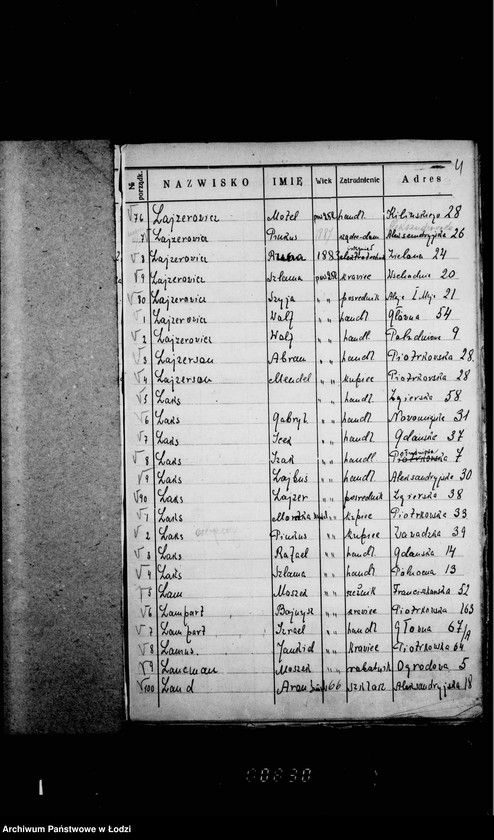 4
№ porządk. NAZWISKO IMIĘ Wiek Zatrudnienie Adres
76 Lajzerowicz Motel pow. 25 l. handl. Kilińskiego 28
7 Lajzerowicz Pinkus 1887 rządc. dom. Aleksandryjska 26
8 Lajzerowicz 1883 Zielona 24
9 Lajzerowicz Szlama pow. 25 l. krawiec Wschodnia 20
80 Lajzerowicz Szyja " " pośrednik Aleje I Maja 21
1 Lajzerowicz Wolf " " handl. Główna 54
2 Lajzerowicz Wolf " " handl. Południowa 9
3 Lajzerson Abram " " handl. Piotrkowska 28
4 Lajzerson Mendel " " kupiec Piotrkowska 28
5 Laks " " handl. Zgierska 58
6 Laks Gabryl " " handl. Nowomiejska 31
7 Laks Icek " " handl. Gdańska 37
8 Laks Izak " " handl. 7
9 Laks Lajbuś " " handl. Aleksandryjska 30
90 Laks Lajzer " " pośrednik Zgierska 38
1 Laks " " kupiec Piotrkowska 33
2 Laks Pinkus " " kupiec Zawadzka 39
3 Laks Rafael " " handl. Gdańska 14
4 Laks Szlama " " handl. Północna 13
5 Lam Moszek " " rzeźnik Franciszkańska 52
6 Lampart " " krawiec Piotrkowska 163
7 Lampart Israel " " handl. Główna 67/A
8 Lamus. Jankiel " " krawiec Piotrkowska 64
9 Lancman Moszek " " rabatnik Ogrodowa 5
100 Land Aron 66 szklarz Aleksandryjska 18
00030
Archiwum Państwowe w Łodzi